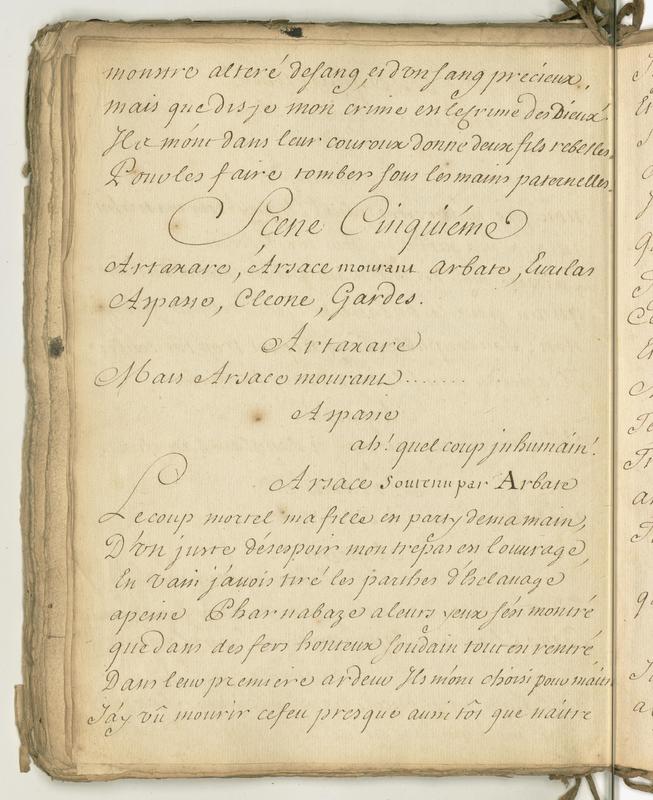 monstre alteré desang, et d'vn sang précieux,
mais que dis-je mon crime en le crime des Dieux
Ils m'ônt dans leur couroux donné deux fils rebelles
Pour les faire tomber sous les mains paternelles.
Scene Cinquiéme
Artaxare, Arsace mourant Arbate, Eurilas
Aspasie, Cleone, Gardes.
Artaxare
Mais Arsace mourant.......
Aspasie
ah! quel coup jnhumain!
Arsace soutenu par Arbate
Le coup mortel ma fille en party dema main,
D'vn juste désespoir mon trépas en l'ouurage,
En vain j'auois tiré les parthes d'Esclauage
apeine Pharnabaze aleurs yeux s'én montré
que dans des fers honteux soudain tout en rentré
Dans leur premiere ardeur Ils m'ônt choisi pour maître
J'ay vû mourir cefeu presque aussi tôt que naitre